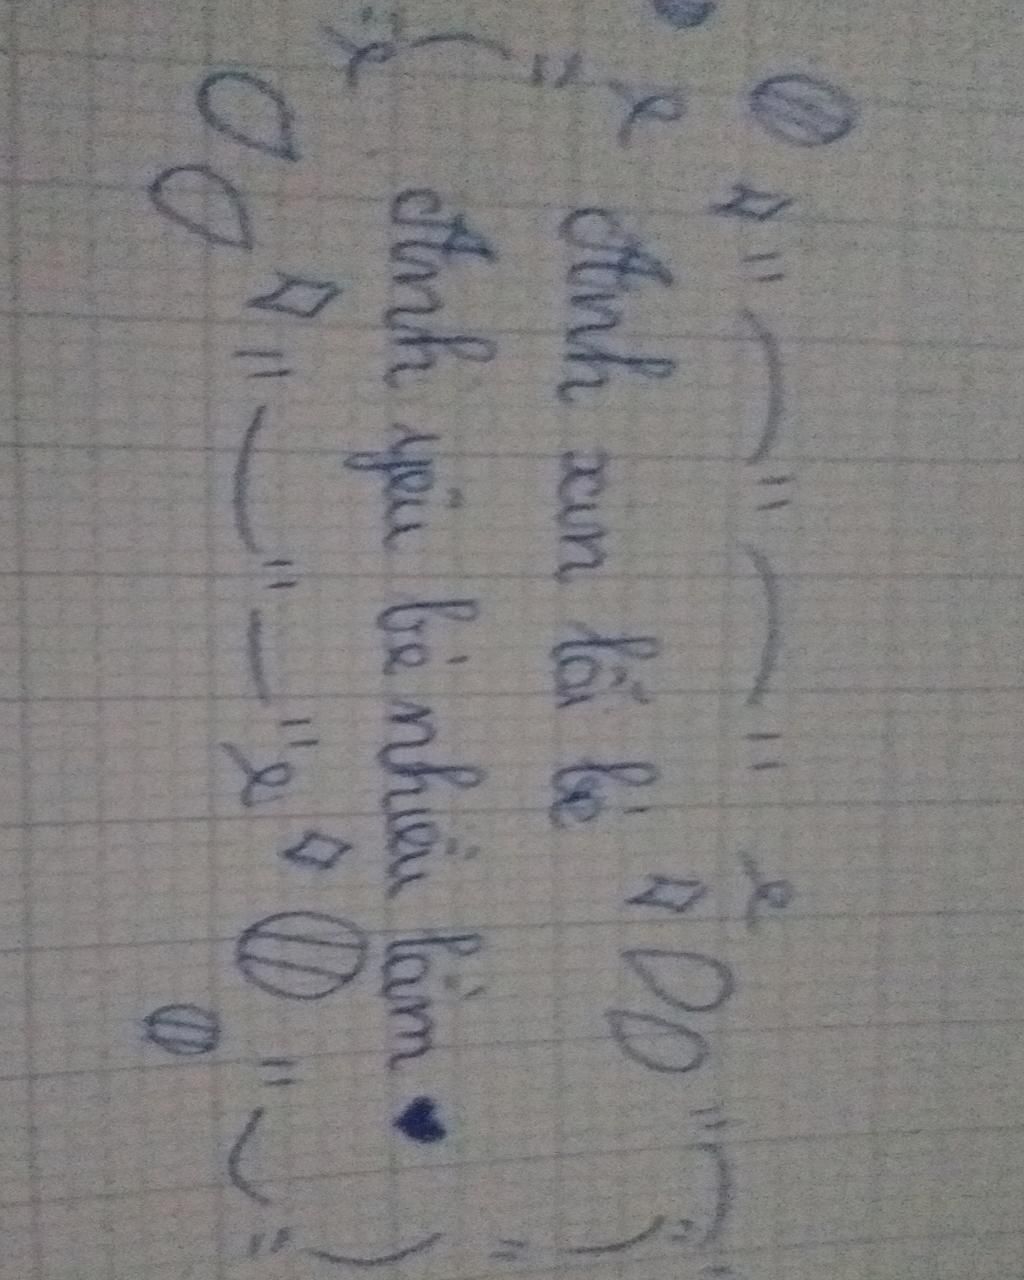 Anh xin lỗi bé
Anh yêu bé nhiều lắm